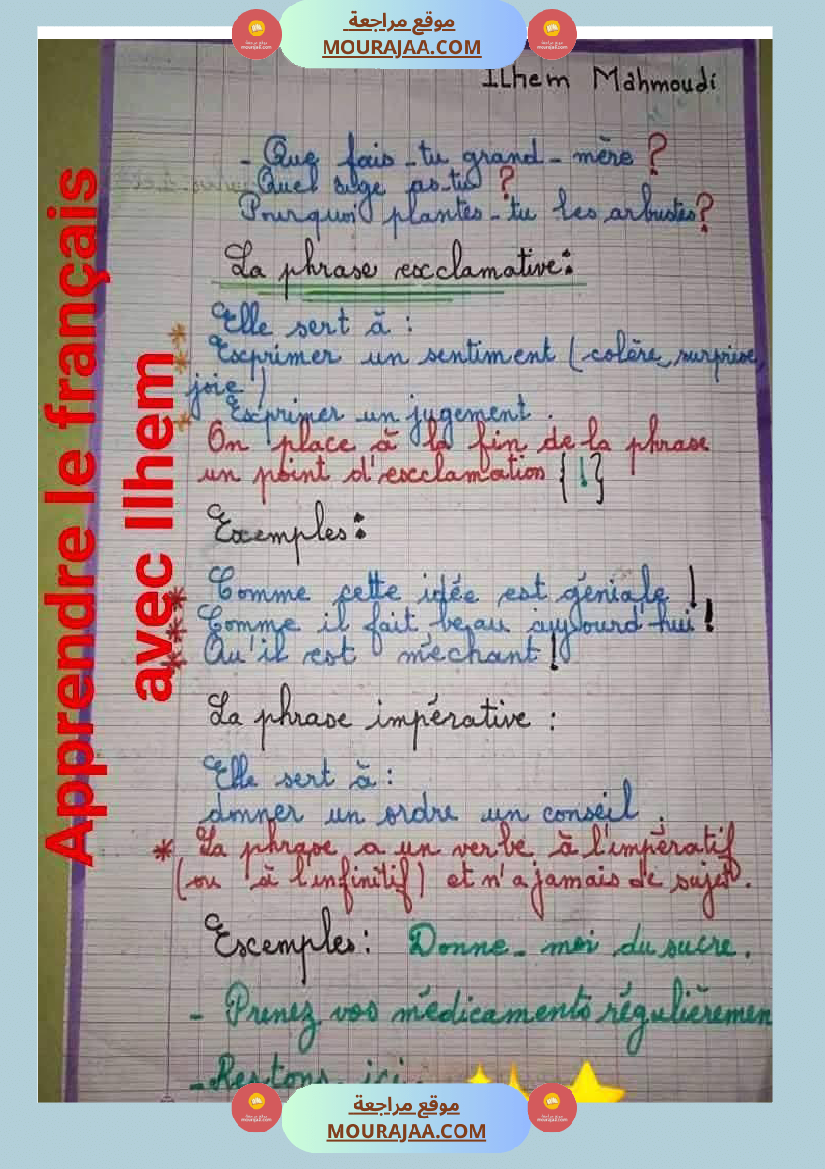 موقع مراجعة
MOURAJAA.COM
Ilhem Mahmoudi
- Que fais-tu grand-mère ?
Quel âge as-tu ?
Pourquoi plantes-tu les arbustes?
La phrase exclamative:
Elle sert à :
* Exprimer un sentiment (colère, surprise,
joie)
* Exprimer un jugement.
On place à la fin de la phrase
un point d'exclamation {!}
Exemples:
* Comme cette idée est géniale !
* Comme il fait beau aujourd'hui !
* Qu'il est méchant !
La phrase impérative :
Elle sert à :
donner un ordre un conseil.
* La phrase a un verbe à l'impératif
(ou à l'infinitif) et n'a jamais de sujet.
Exemples: Donne-moi du sucre.
- Prenez vos médicaments régulièremen
- Restons ici.
Apprendre le français
avec Ilhem
موقع مراجعة
MOURAJAA.COM